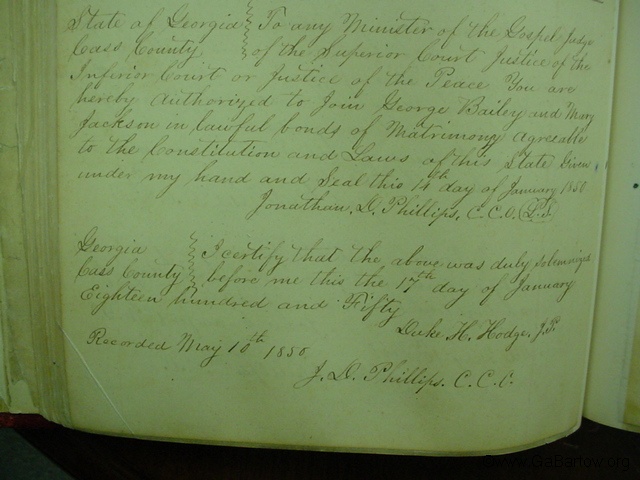 State of Georgia To any Minister of the Gospel Judge
Cass County of the Superior Court Justice of the
Inferior Court or Justice of the Peace You are
hereby Authorized to Join George Bailey and Mary
Jackson in lawful bonds of Matrimony agreeable
to the Constitution and Laws of this State Given
under my hand and Seal this 14th day of January 1850
Jonathan. D. Phillips, C.C.O. L.S.
Georgia I certify that the above was duly solemnized
Cass County before me this the 17th day of January
Eighteen hundred and Fifty
Duke. H. Hodge. J.P.
Recorded May 10th 1850
J. D. Phillips. C.C.O.
GaBartow.org